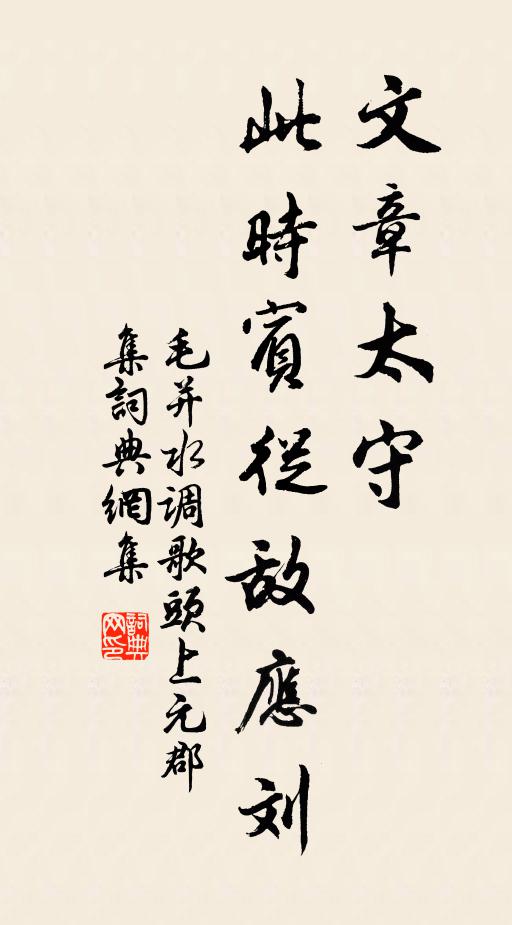 文章太守
此時賓從敌應刘
毛并水调歌頭上元郡
集詞典網集
詞典网印